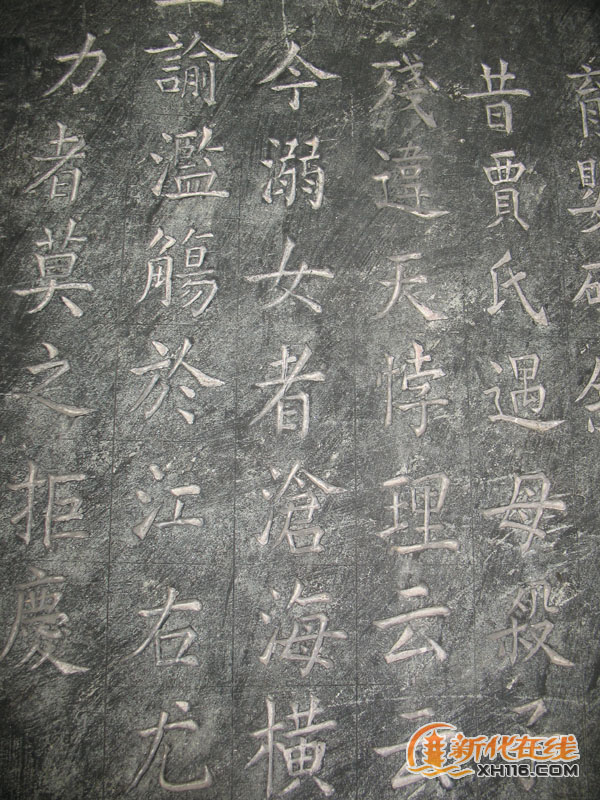 育嬰碑
昔賈氏遇母殺子
殘違天悖理云云
今溺女者滄海橫
諭濫觴於江右尤
力者莫之拒慶
新化在线
XH116.COM